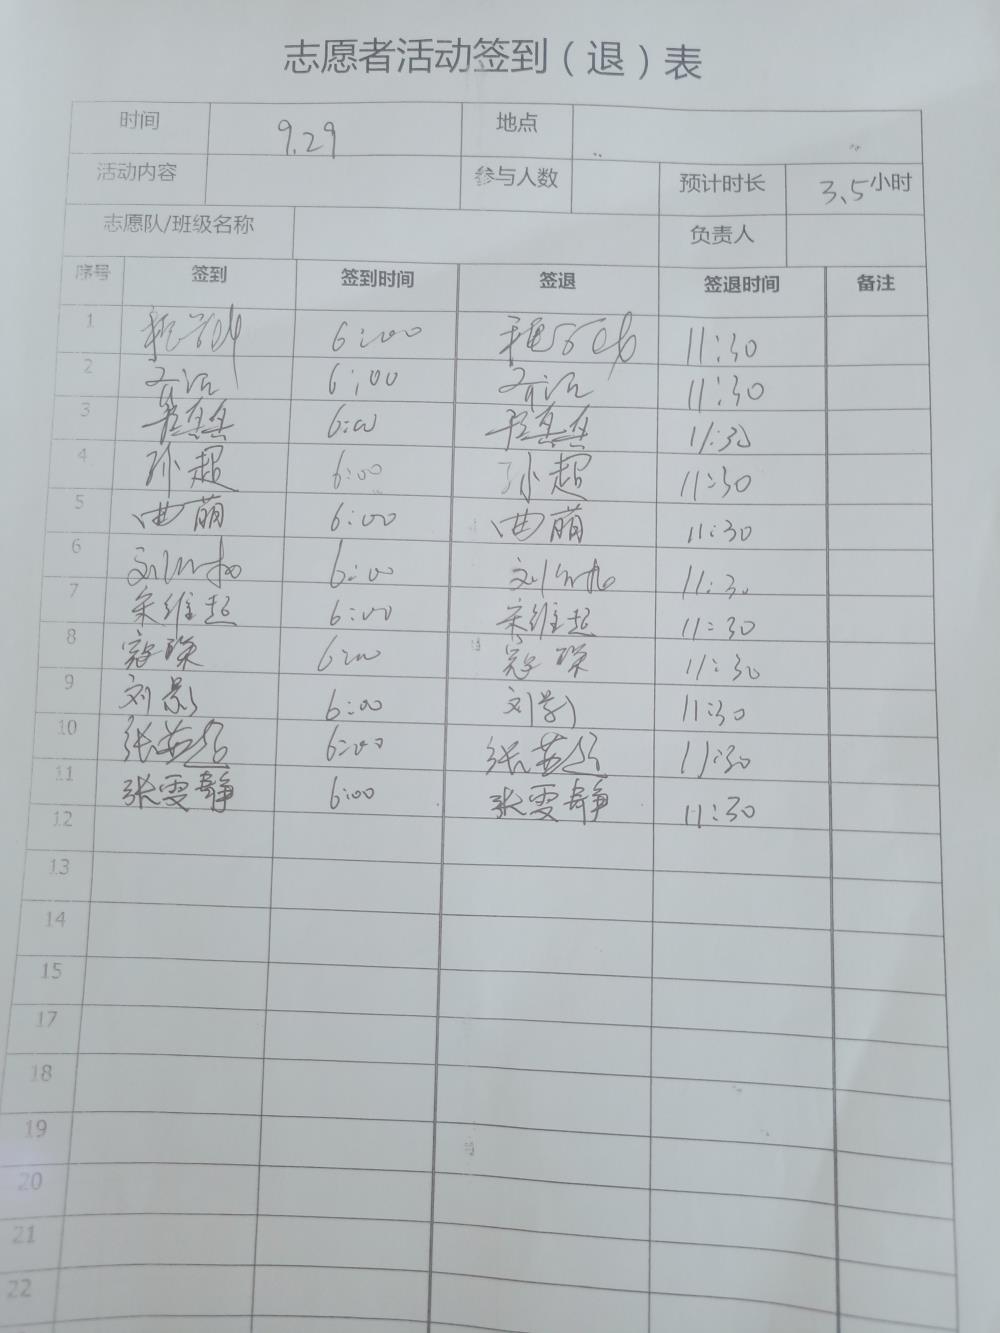 志愿者活动签到（退）表
时间 9.29 地点
活动内容 参与人数 预计时长 3.5小时
志愿队/班级名称 负责人
序号 签到 签到时间 签退 签退时间 备注
1 6:00 11:30
2 6:00 11:30
3 6:00 11:30
4 孙超 6:00 孙超 11:30
5 曲萌 6:00 曲萌 11:30
6 6:00 11:30
7 宋维起 6:00 宋维起 11:30
8 寇琛 6:00 寇琛 11:30
9 刘影 6:00 刘影 11:30
10 6:00 11:30
11 张雯静 6:00 张雯静 11:30
12
13
14
15
17
18
19
20
21
22